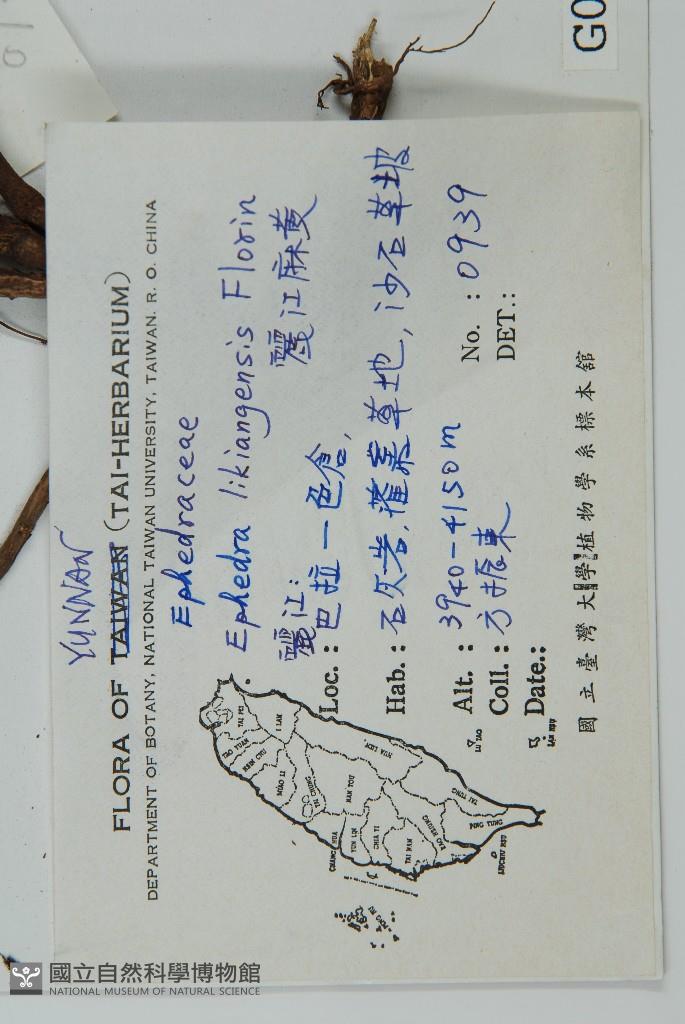 YUNNAN
FLORA OF TAIWAN (TAI-HERBARIUM)
DEPARTMENT OF BOTANY, NATIONAL TAIWAN UNIVERSITY, TAIWAN. R. O. CHINA
Ephedraceae
Ephedra likiangensis Florin
麗江麻黄
麗江:
Loc.: 巴拉一色含,
Hab.: 石灰岩, 草地, 沙石草坡
Alt.: 3940-4150m No.: 0939
Coll.: 方振東 DET.:
Date.:
國立臺灣大學植物學系標本館
TAI PEI
I LAN
TAO YUAN
HSIN CHU
MIAO LI
TAI CHUNG
HUA LIEN
NAN TOU
CHANG HUA
YUN LIN
CHIA YI
TAI NAN
TAI TUNG
PING TUNG
LU TAO
LAN HSU
G0
國立自然科學博物館
NATIONAL MUSEUM OF NATURAL SCIENCE